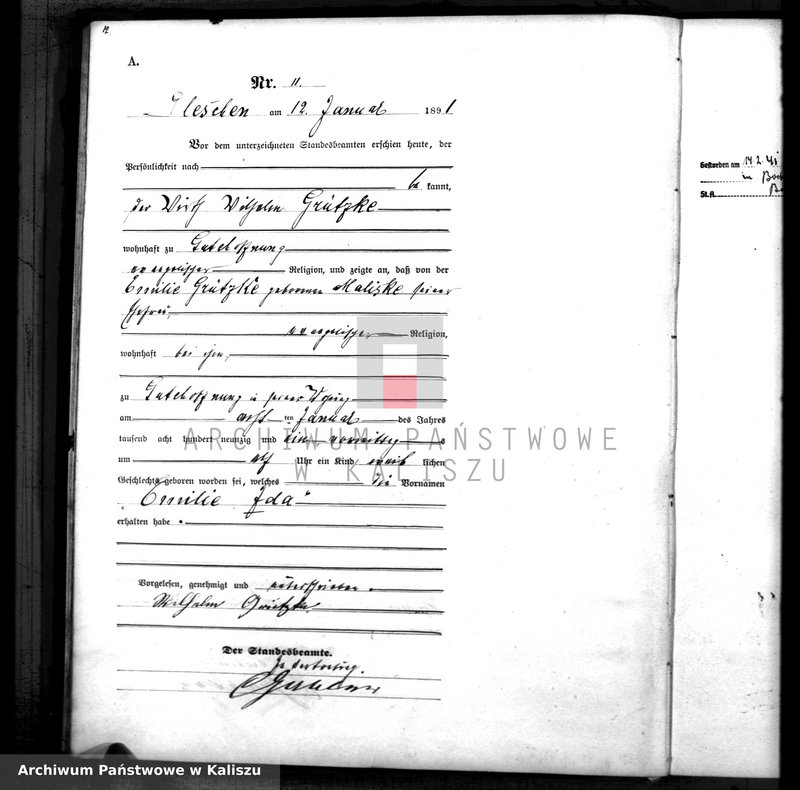 12
A.
Nr. 11.
Pleschen am 12. Januar 1891
Vor dem unterzeichneten Standesbeamten erschien heute, der
Persönlichkeit nach
be kannt,
der Wirth Wilhelm Grützke
wohnhaft zu Gutehoffnung
evangelischer Religion, und zeigte an, daß von der
Emilie Grützke geborenen Maliske seiner
Ehefrau,
evangelischer Religion,
wohnhaft bei ihm,
zu Gutehoffnung in seiner Wohnung
am acht ten Januar des Jahres
tausend acht hundert neunzig und ein vormittags
um elf Uhr ein Kind weib lichen
Geschlechts geboren worden sei, welches die Vornamen
"Emilie Ida"
erhalten habe.
Vorgelesen, genehmigt und unterschrieben.
Wilhelm Grützke
Der Standesbeamte.
In Vertretung.
Gestorben am 14.2.41
in
St. A.
ARCHIWUM PAŃSTWOWE
W KALISZU
Archiwum Państwowe w Kaliszu